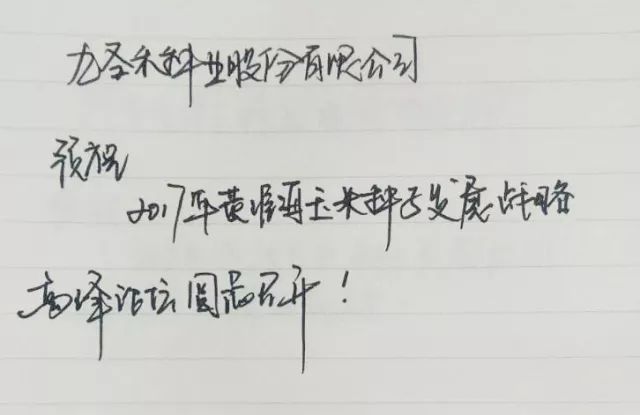 九圣禾种业股份有限公司
预祝
2017年黄淮海玉米种子发展战略
高峰论坛圆满召开！